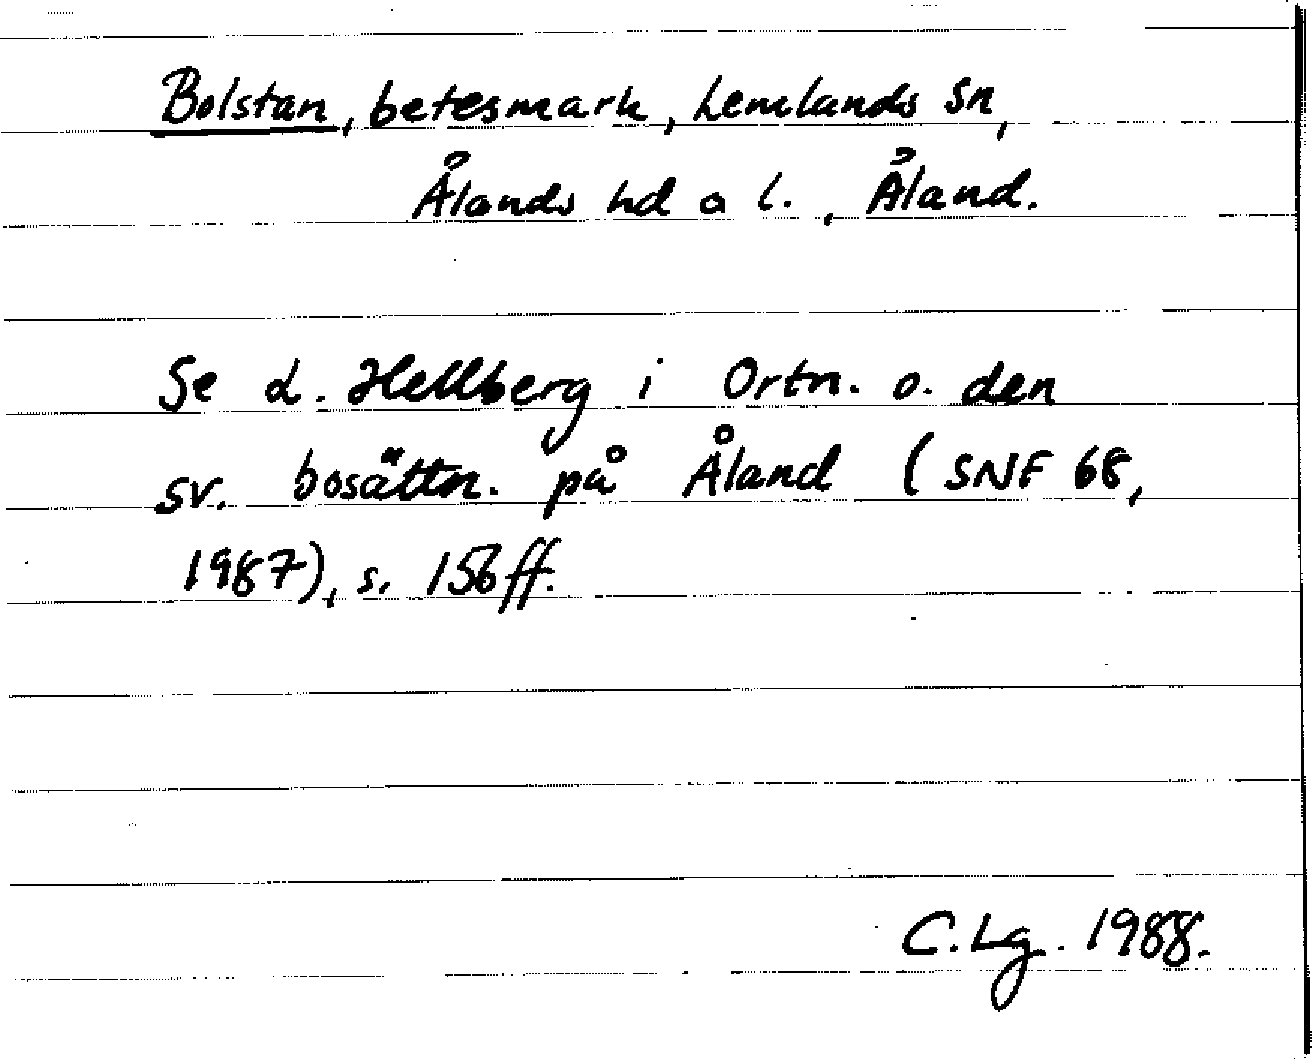 Bolstan, betesmark, Lemlands sn,
Ålands hd o l., Åland.
Se L. Hellberg i Ortn. o. den
sv. bosättn. på Åland (SNF 68,
1987), s. 156 ff.
C. Lg. 1988.